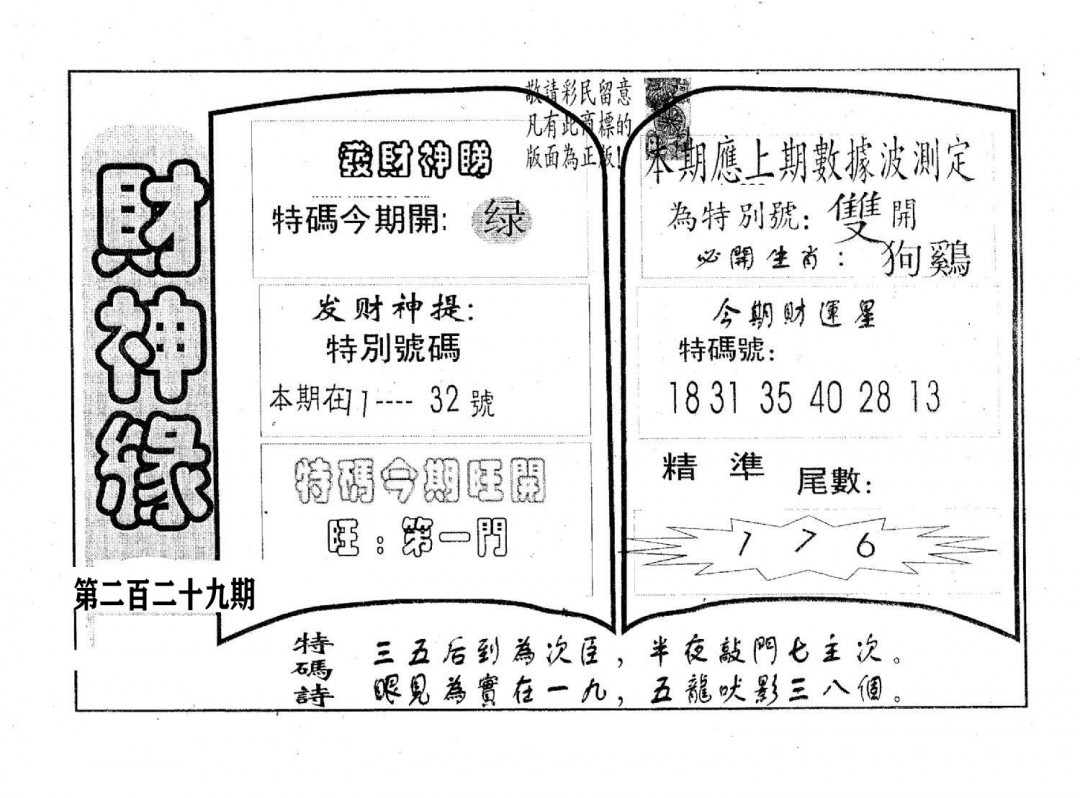 財神緣
第二百二十九期
敬請彩民留意
凡有此商標的
版面為正版!
發財神睇
特碼今期開: 绿
发财神提:
特別號碼
本期在11----32號
特碼今期旺開
旺:第一門
本期應上期數據波測定
為特別號: 雙開
必開生肖: 狗鷄
今期財運星
特碼號:
18 31 35 40 28 13
精準
尾數:
1 7 6
特碼詩
三五后到為次臣,半夜敲門七主次。
眼見為實在一九,五龍吠影三八個。